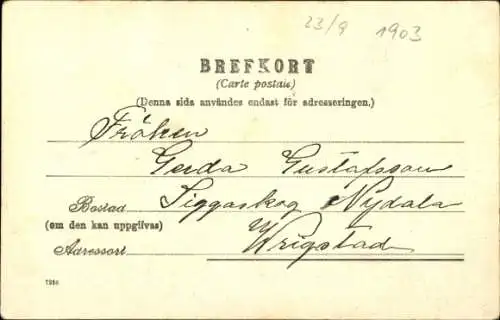 23/9 1903
BREFKORT
(Carte postale)
(Denna sida användes endast för adresseringen.)
Fröken
Gerda Gustafsson
Bostad Siggaskog Nydala
(om den kan uppgifvas)
Wrigstad
Adressort
7256